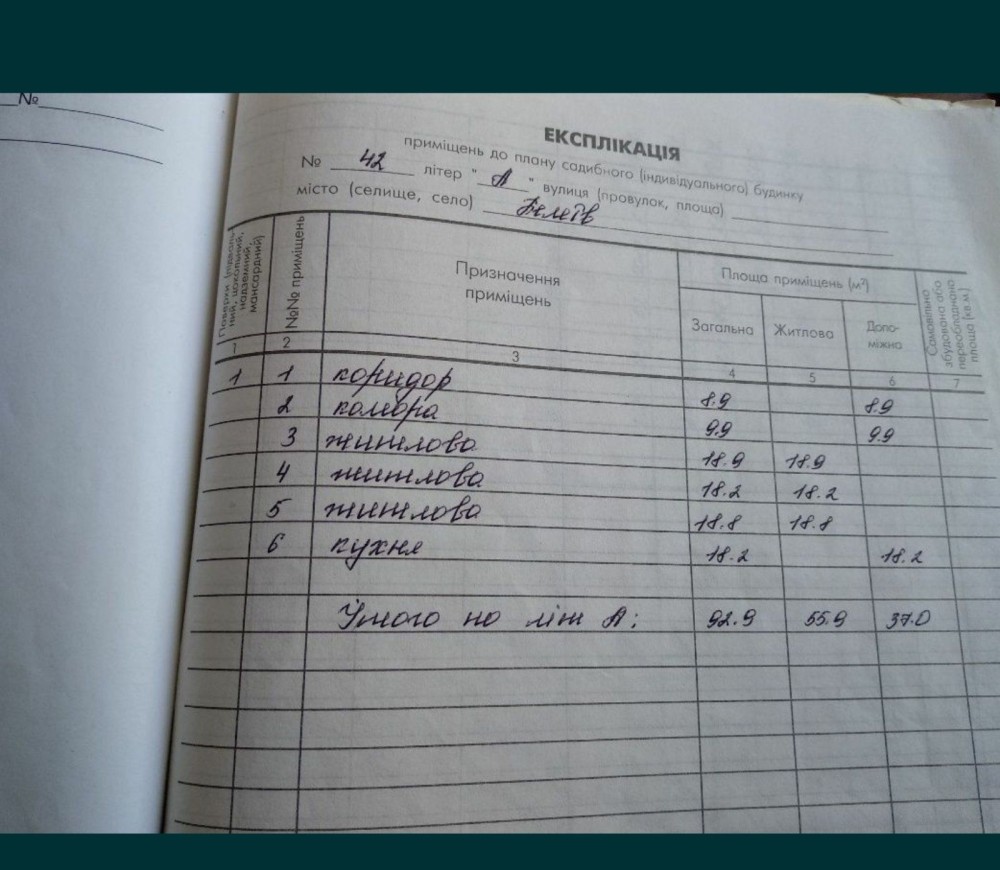 №
ЕКСПЛІКАЦІЯ
приміщень до плану садибного (індивідуального) будинку
№ 42 літер "А" вулиця (провулок, площа)
місто (селище, село)
Поверхи надземний, мансардний) №№ приміщень Призначення приміщень Площа приміщень (м²) Самовільно збудована або переобладнана площа (кв.м.)
Загальна Житлова Допо-міжна
1 2 3 4 5 6 7
1 1 коридор 8.9 8.9
2 комора 9.9 9.9
3 житлова 18.9 18.9
4 житлова 18.2 18.2
5 житлова 18.8 18.8
6 кухня 18.2 18.2
Ўмого по літ А: 92.9 55.9 37.0